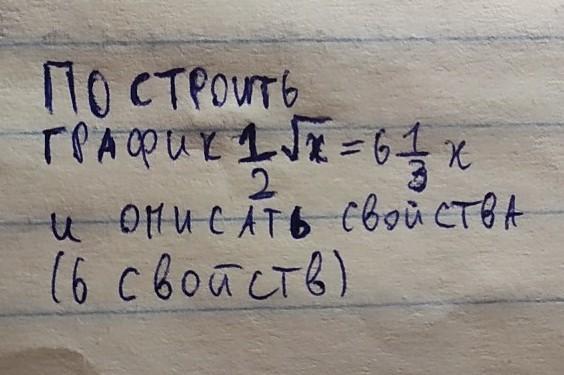 ПОСТРОИТЬ
ГРАФИК 1/2 √x = 6 1/3 x
И ОПИСАТЬ СВОЙСТВА
(6 СВОЙСТВ)